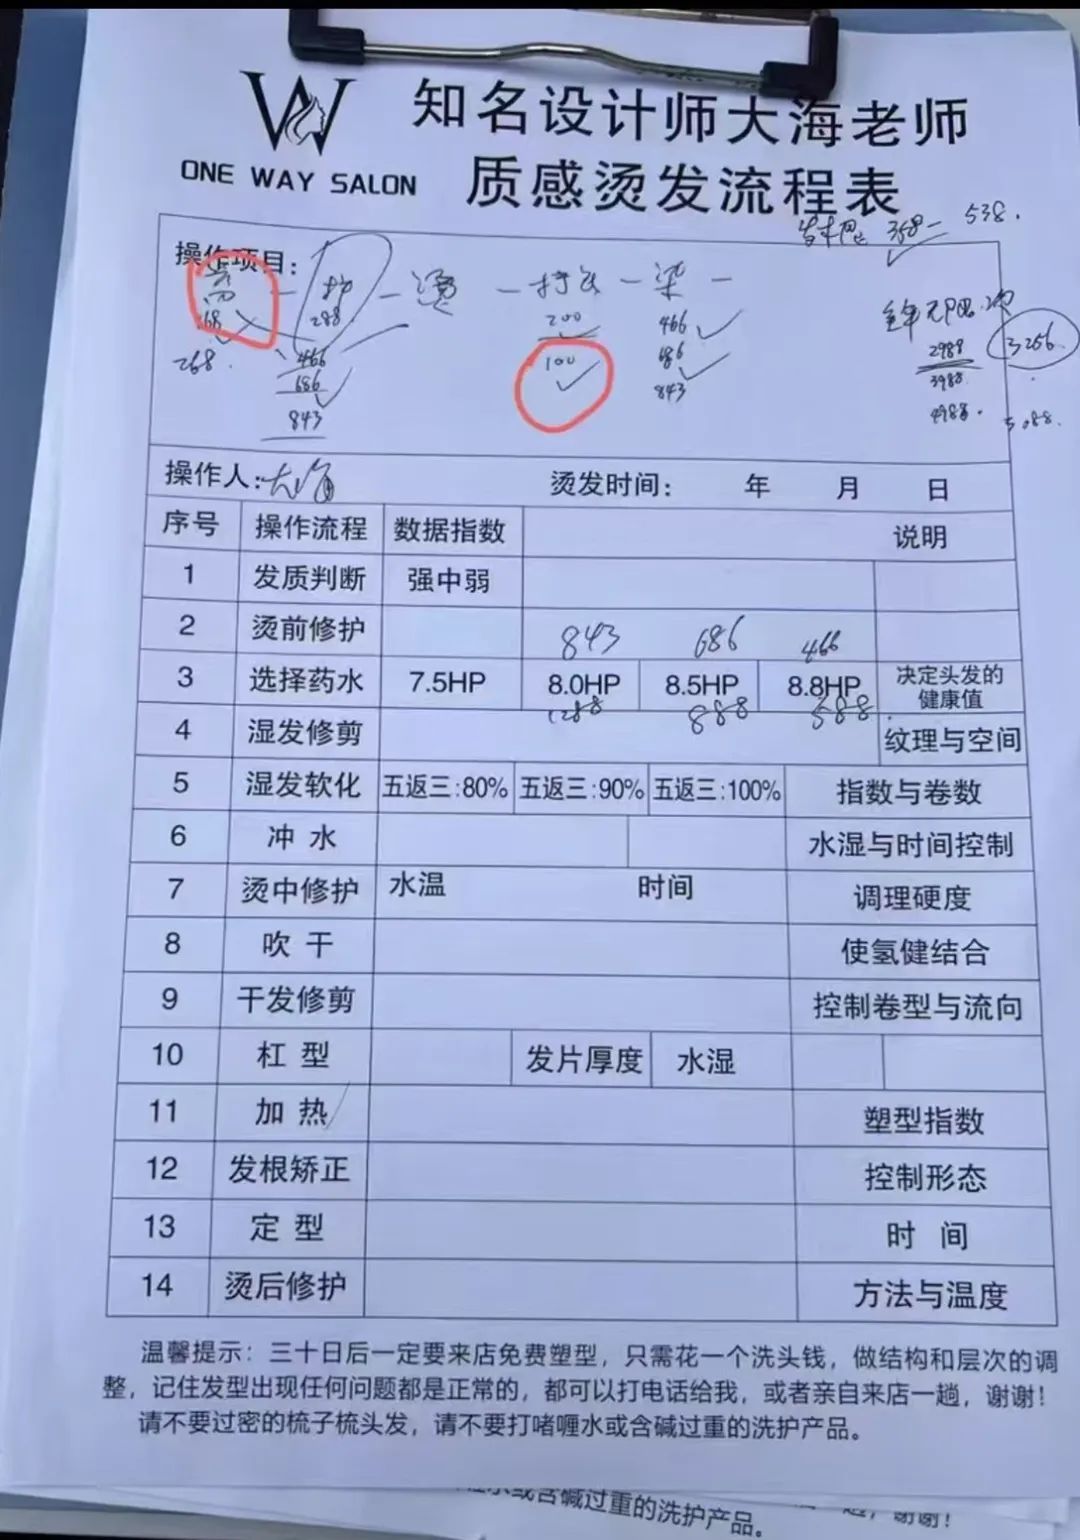 知名设计师大海老师
ONE WAY SALON
质感烫发流程表
358 538.
操作项目：
护 烫 染
168 288 200 466
268. 466 100 686
686 843
843
全年无限次
2988 3256
3988
4988.
操作人：大海 烫发时间： 年 月 日
序号 操作流程 数据指数 说明
1 发质判断 强中弱
2 烫前修护 843 686 466
3 选择药水 7.5HP 8.0HP 8.5HP 8.8HP 决定头发的健康值
1288 888 588
4 湿发修剪 纹理与空间
5 湿发软化 五返三:80% 五返三:90% 五返三:100% 指数与卷数
6 冲水 水湿与时间控制
7 烫中修护 水温 时间 调理硬度
8 吹干 使氢健结合
9 干发修剪 控制卷型与流向
10 杠型 发片厚度 水湿
11 加热 塑型指数
12 发根矫正 控制形态
13 定型 时间
14 烫后修护 方法与温度
温馨提示：三十日后一定要来店免费塑型，只需花一个洗头钱，做结构和层次的调
整，记住发型出现任何问题都是正常的，都可以打电话给我，或者亲自来店一趟，谢谢！
请不要过密的梳子梳头发，请不要打啫喱水或含碱过重的洗护产品。
或含碱过重的洗护产品。 谢谢！